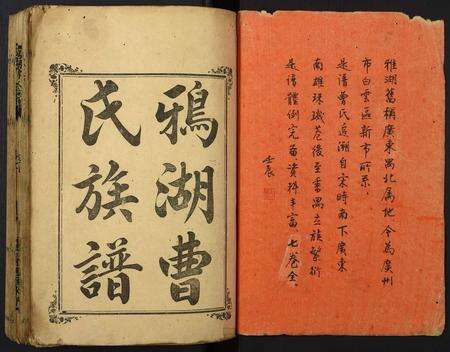 雅湖舊稱廣東禺北屬地今為廣州
市白雲區新市所系.
是譜曹氏追溯自宋時南下廣東
南雄珠璣巷後至番禺立族繁衍
是譜體例完備資料丰富七卷全.
壬辰
鴉湖曹
氏族譜